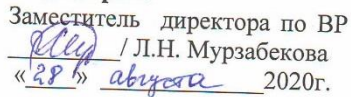 Заместитель директора по ВР
/ Л.Н. Мурзабекова
«28» августа 2020г.